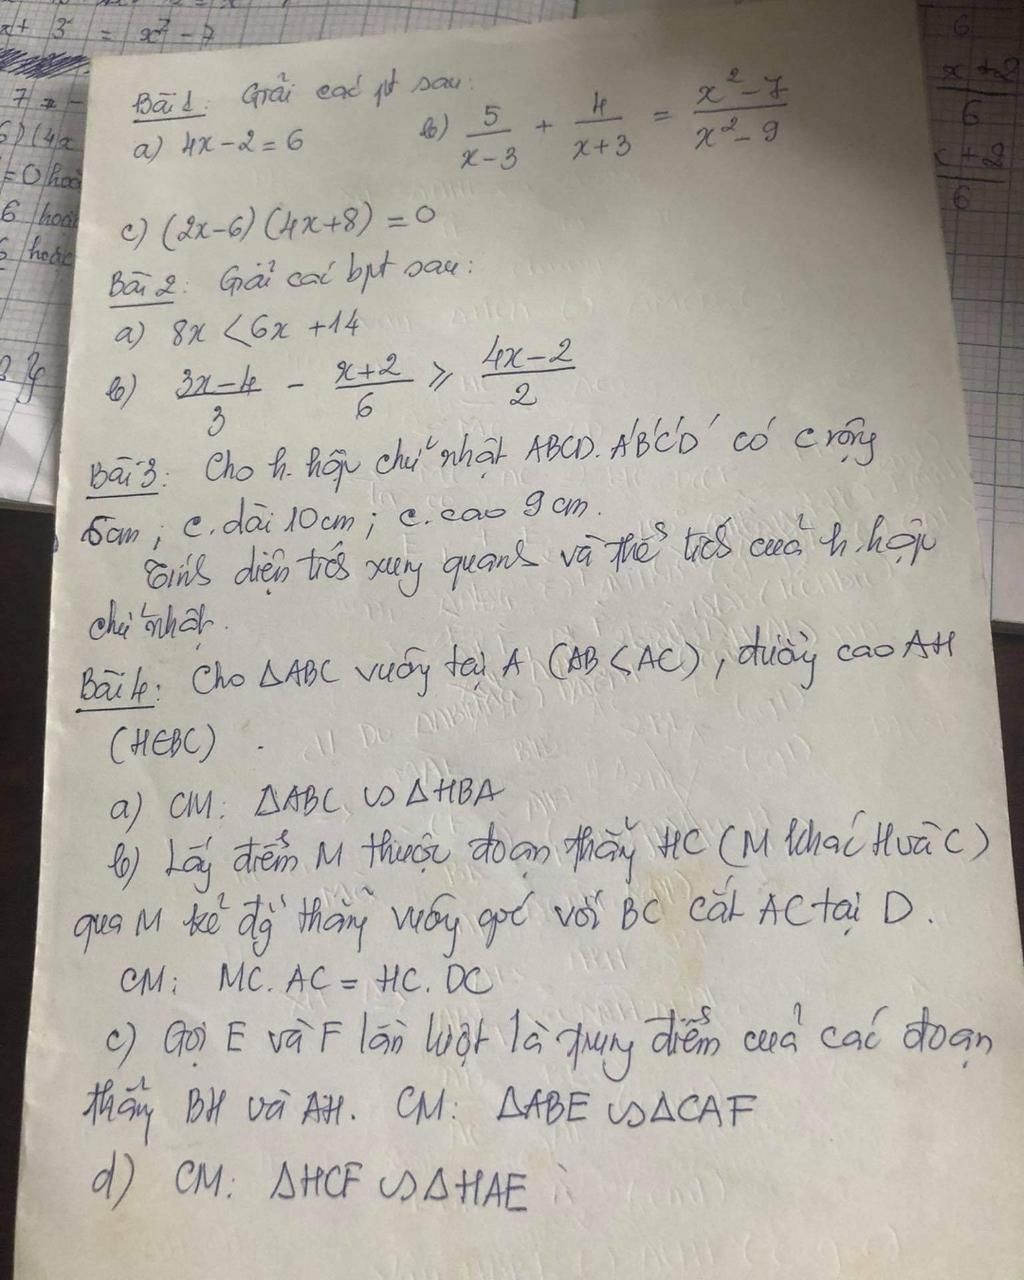 x + 3 = x² - 7
Bài 1: Giải các pt sau:
a) 4x - 2 = 6 b) 5/(x-3) + 4/(x+3) = (x²-7)/(x²-9)
c) (2x-6)(4x+8) = 0
Bài 2: Giải các bpt sau:
a) 8x < 6x + 14
b) (3x-4)/3 - (x+2)/6 ≥ (4x-2)/2
Bài 3: Cho h. hộp chữ nhật ABCD.A'B'C'D' có c rộng
5cm; c. dài 10cm; c. cao 9cm.
Tính diện tích xung quanh và thể tích của h. hộp
chữ nhật.
Bài 4: Cho ΔABC vuông tại A (AB < AC), đường cao AH
(H∈BC).
a) CM: ΔABC ∽ ΔHBA
b) Lấy điểm M thuộc đoạn thẳng HC (M khác H và C)
qua M kẻ đg thẳng vuông góc với BC cắt AC tại D.
CM: MC. AC = HC. DC
c) Gọi E và F lần lượt là trung điểm của các đoạn
thẳng BH và AH. CM: ΔABE ∽ ΔCAF
d) CM: ΔHCF ∽ ΔHAE
7x -
6)(4x
= 0 hoặc
6 hoặc
hoặc
6
x + 2
6
6